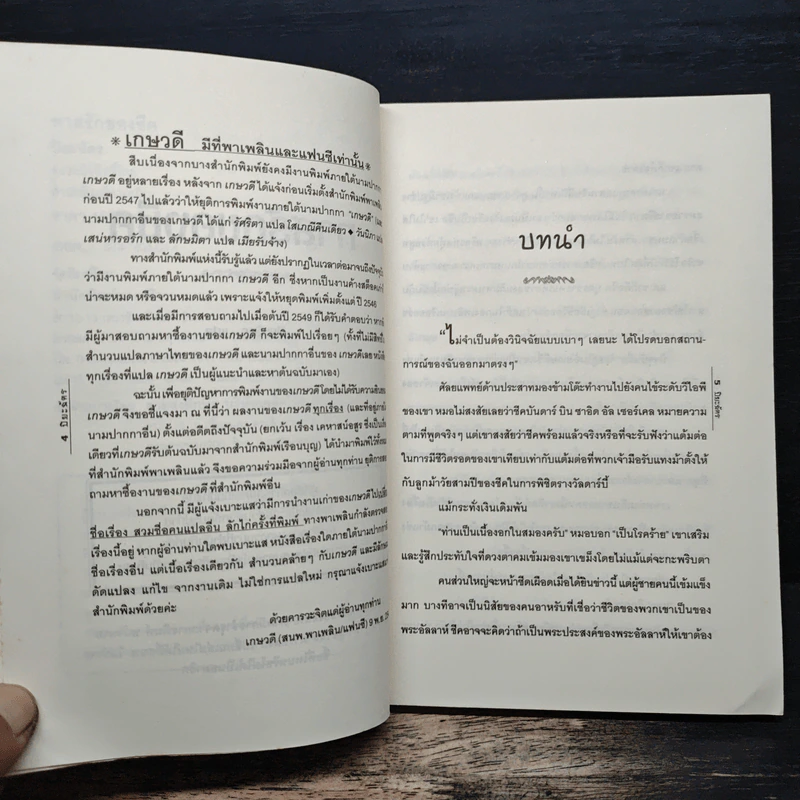 * เกษวดี มีที่พาเพลินและแฟนซีเท่านั้น *
สืบเนื่องจากบางสำนักพิมพ์ยังคงมีงานพิมพ์ภายใต้นามปากกา
เกษวดี อยู่หลายเรื่อง หลังจาก เกษวดี ได้แจ้งก่อนเริ่มตั้งสำนักพิมพ์พาเพลิน
ก่อนปี 2547 ไปแล้วว่าให้ยุติการพิมพ์งานภายใต้นามปากกา "เกษวดี"
นามปากกาอื่นของเกษวดี ได้แก่ รัศริตา แปล โสเภณีคืนเดียว ◆ วันนิภา แปล
เสน่หารอรัก และ ลักษมิตา แปล เมียรับจ้าง)
ทางสำนักพิมพ์แห่งนี้รับรู้แล้ว แต่ยังปรากฏในเวลาต่อมาจนถึงปัจจุบัน
ว่ามีงานพิมพ์ภายใต้นามปากกา เกษวดี อีก ซึ่งหากเป็นงานค้างสต็อคเก่า
น่าจะหมด หรือจวนหมดแล้ว เพราะแจ้งให้หยุดพิมพ์เพิ่มตั้งแต่ ปี 2546
และเมื่อมีการสอบถามไปเมื่อต้นปี 2549 ก็ได้รับคำตอบว่า หาก
มีผู้มาสอบถามหาซื้องานของเกษวดี ก็จะพิมพ์ไปเรื่อยๆ (ทั้งที่ไม่มีสิทธิ์
สำนวนแปลภาษาไทยของเกษวดี และนามปากกาอื่นของ เกษวดีเลย หนังสือ
ทุกเรื่องที่แปล เกษวดี เป็นผู้แนะนำและหาต้นฉบับมาเอง)
ฉะนั้น เพื่อยุติปัญหาการพิมพ์งานของเกษวดีโดยไม่ได้รับความยินยอม
เกษวดี จึงขอชี้แจงมา ณ ที่นี้ว่า ผลงานของเกษวดี ทุกเรื่อง (และที่อยู่ภายใต้
นามปากกาอื่น) ตั้งแต่อดีตถึงปัจจุบัน (ยกเว้น เรื่อง เคหาสน์อสูร ซึ่งเป็นเรื่อง
เดียวที่เกษวดีรับต้นฉบับมาจากสำนักพิมพ์เรือนบุญ) ได้นำมาพิมพ์ไว้ทั้งหมด
ที่สำนักพิมพ์พาเพลินแล้ว จึงขอความร่วมมือจากผู้อ่านทุกท่าน ยุติการสอบ
ถามหาซื้องานของเกษวดี ที่สำนักพิมพ์อื่น
นอกจากนี้ มีผู้แจ้งเบาะแสว่ามีการนำงานเก่าของเกษวดีไปเปลี่ยน
ชื่อเรื่อง สวมชื่อคนแปลอื่น ลักไก่ครั้งที่พิมพ์ ทางพาเพลินกำลังตรวจสอบ
เรื่องนี้อยู่ หากผู้อ่านท่านใดพบเบาะแส หนังสือเรื่องใดภายใต้นามปากกา
ชื่อเรื่องอื่น แต่เนื้อเรื่องเดียวกัน สำนวนคล้ายๆ กับเกษวดี และมีลักษณะ
ดัดแปลง แก้ไข จากงานเดิม ไม่ใช่การแปลใหม่ กรุณาแจ้งเบาะแส
สำนักพิมพ์ด้วยค่ะ
ด้วยคารวะจิตแด่ผู้อ่านทุกท่าน
เกษวดี (สนพ.พาเพลิน/แฟนซี) 9 พ.ย.
4 ปิยะฉัตร
บทนำ
"ไม่จำเป็นต้องวินิจฉัยแบบเบาๆ เลยนะ ได้โปรดบอกสถาน-
การณ์ของฉันออกมาตรงๆ"
ศัลยแพทย์ด้านประสาทมองข้ามโต๊ะทำงานไปยังคนไข้ระดับวีไอพี
ของเขา หมอไม่สงสัยเลยว่าชีคบันดาร์ บิน ซาอิด อัล เซอร์เคล หมายความ
ตามที่พูดจริงๆ แต่เขาสงสัยว่าชีคพร้อมแล้วจริงหรือที่จะรับฟังว่าแต้มต่อ
ในการมีชีวิตรอดของเขาเทียบเท่ากับแต้มต่อที่พวกเจ้ามือรับแทงม้าตั้งให้
กับลูกม้าวัยสามปีของชีคในการพิชิตรางวัลดาร์บี้
แม้กระทั่งเงินเดิมพัน
"ท่านเป็นเนื้องอกในสมองครับ" หมอบอก "เป็นโรคร้าย" เขาเสริม
และรู้สึกประทับใจที่ดวงตาคมเข้มมองตรงมาเขาเข็งโดยไม่แม้แต่จะกะพริบตา
คนส่วนใหญ่จะหน้าซีดเผือดเมื่อได้ยินข่าวนี้ แต่ผู้ชายคนนี้เข้มแข็ง
มาก บางทีอาจเป็นนิสัยของคนอาหรับที่เชื่อว่าชีวิตของพวกเขาเป็นของ
พระอัลลาห์ ชีคอาจจะคิดว่าถ้าเป็นพระประสงค์ของพระอัลลาห์ให้เขาต้อง
5 ปิยะฉัตร